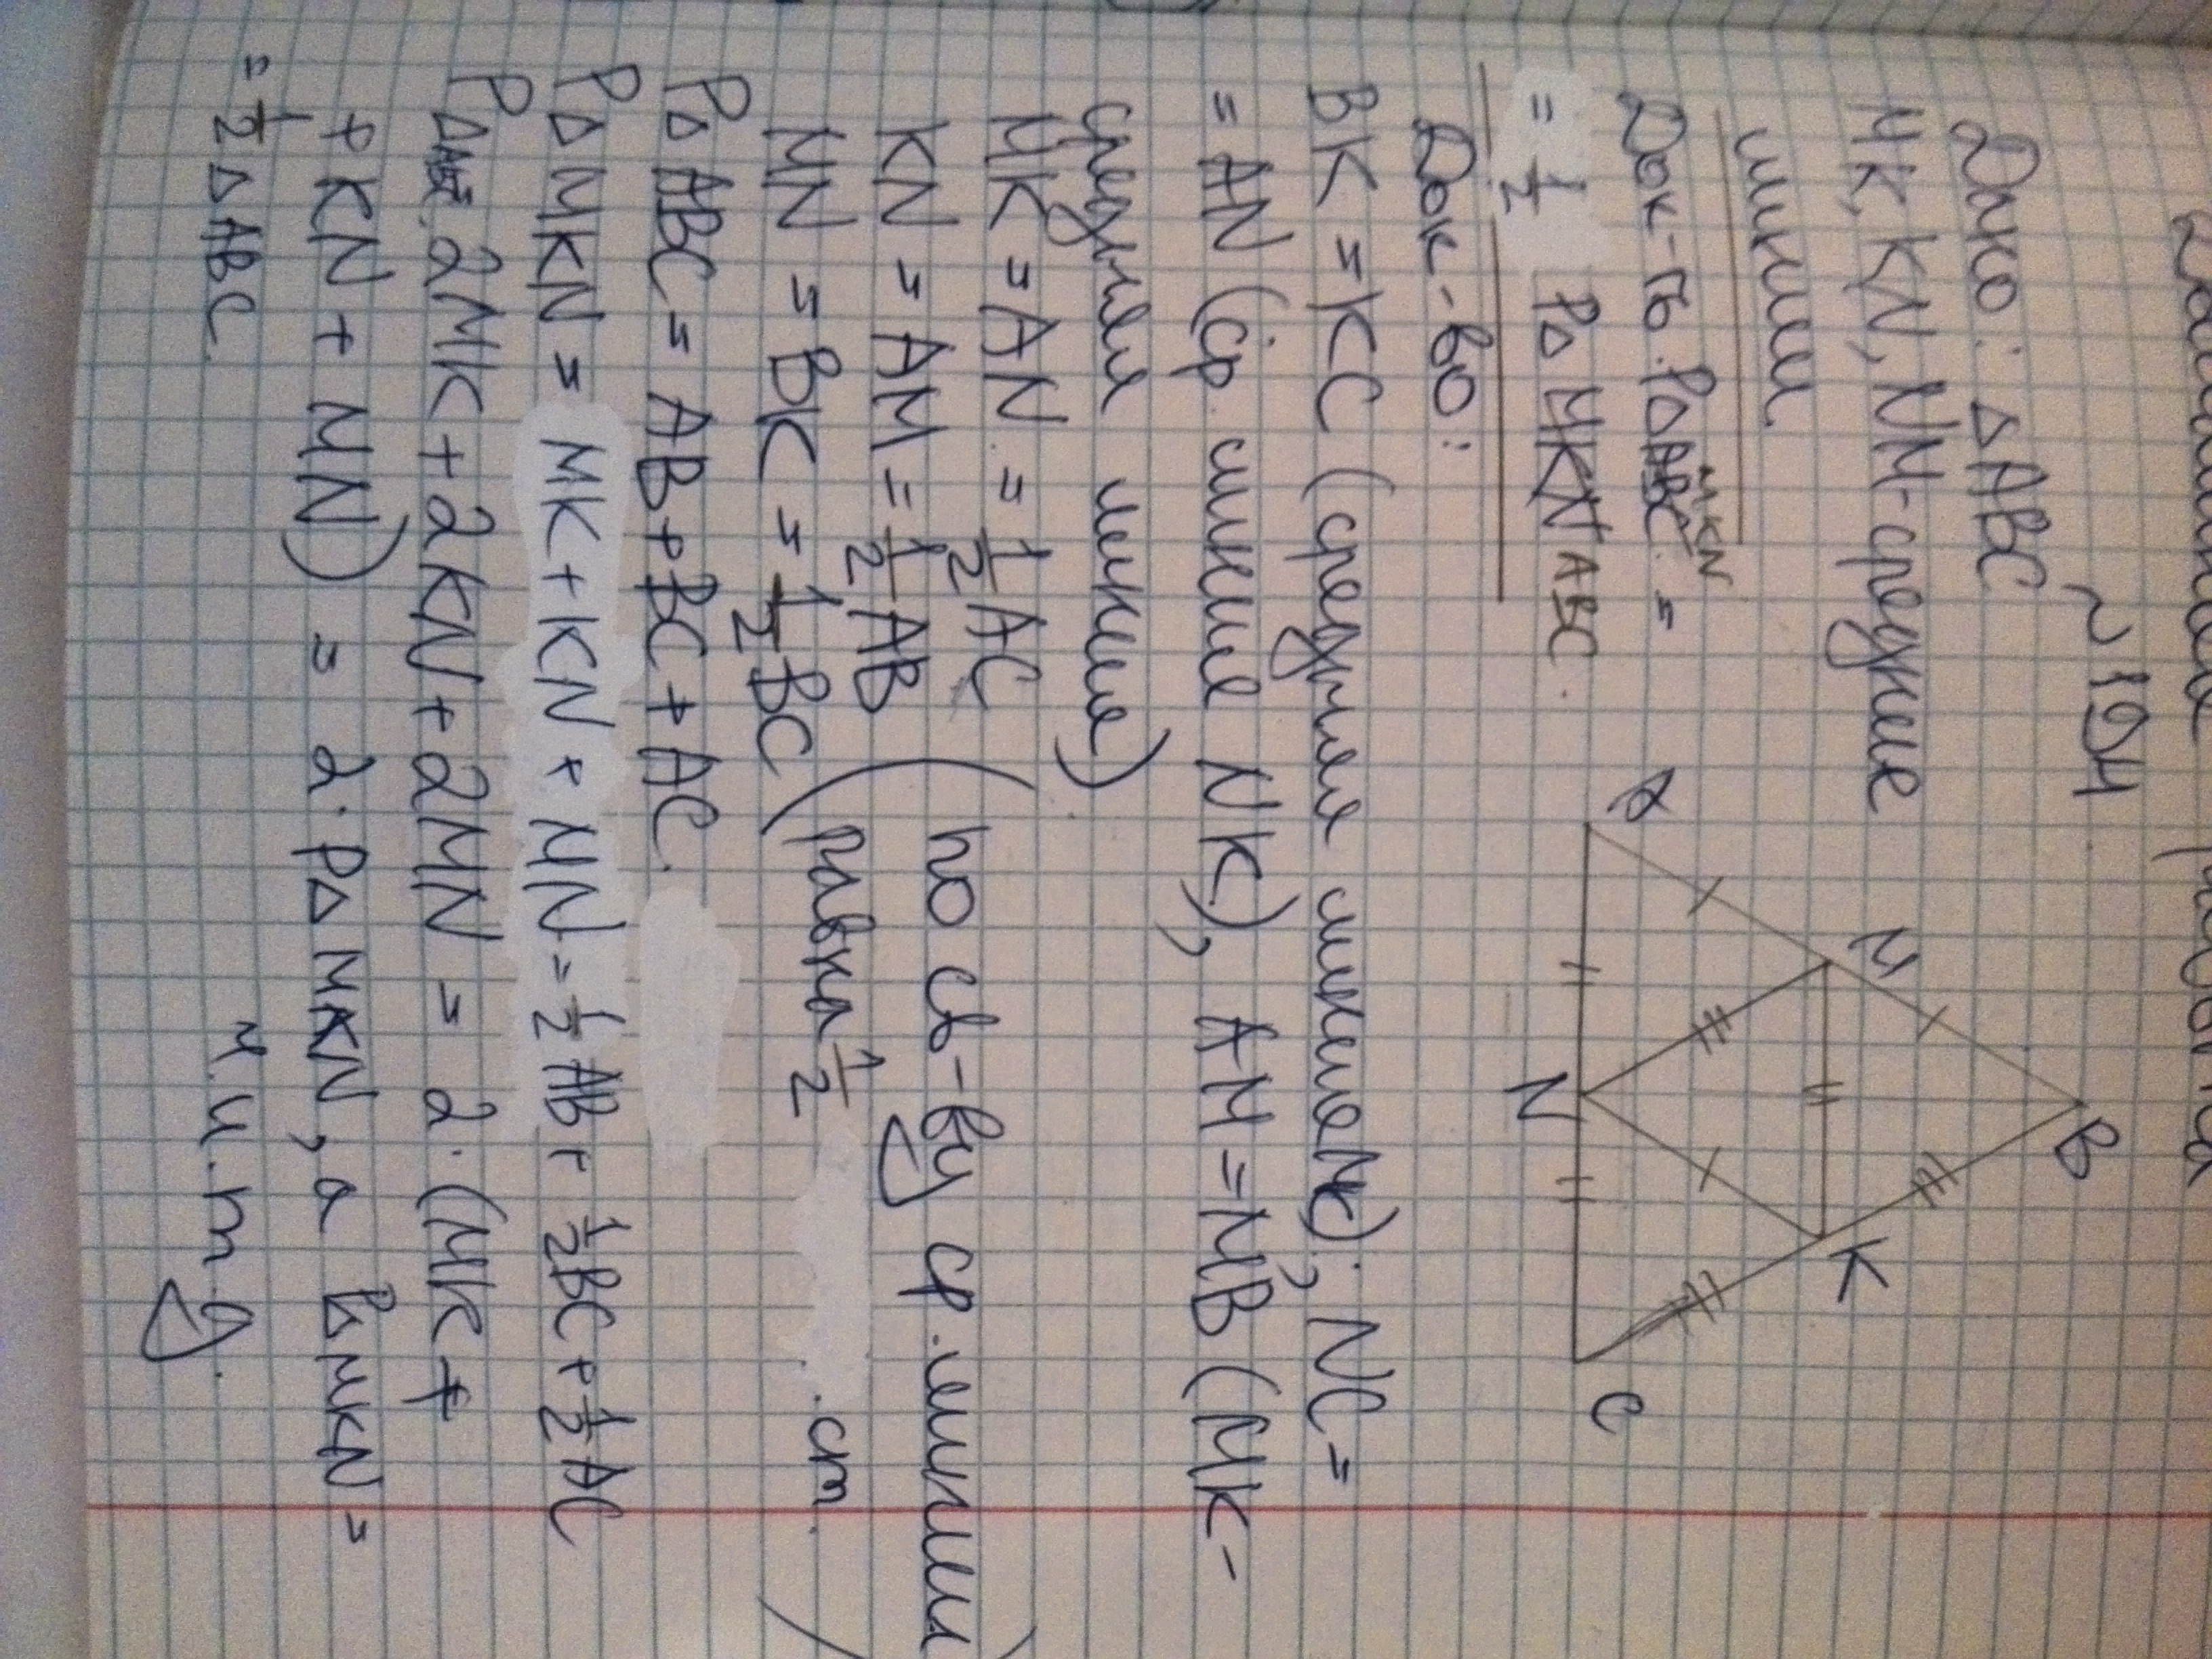 ~ 194
Дано: △ ABC
MK, KN, NM - средние
линии
Док-ть: P△ MKN =
= 1/2 P△ ABC.
Док-во:
A M B K C N
BK = KC (средняя линия NK); NC =
= AN (ср. линия NK), AM = MB (MK -
средняя линия)
MK = AN = 1/2 AC
KN = AM = 1/2 AB
MN = BK = 1/2 BC
(по св-ву ср. линии
равна 1/2 . ст. )
P△ ABC = AB + BC + AC.
P△ MKN = MK + KN + MN = 1/2 AB + 1/2 BC + 1/2 AC
P△ABC = 2MK + 2KN + 2MN = 2 · (MK +
+ KN + MN) = 2 · P△ MKN, а P△ MKN =
= 1/2 △ ABC.
ч.и.т.д.